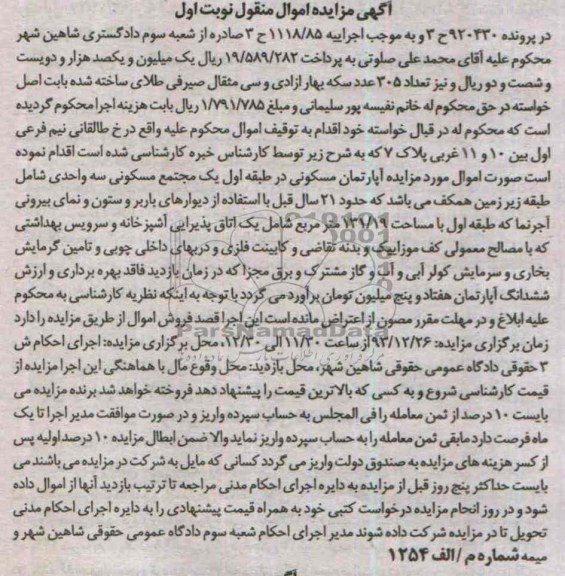 آگهی مزایده اموال منقول نوبت اول
در پرونده ۹۲۰۴۳۰ح ۳ و به موجب اجراییه ۱۱۱۸/۸۵ ح ۳ صادره از شعبه سوم دادگستری شاهین شهر
محکوم علیه آقای محمد علی صلوتی به پرداخت ۱۹/۵۸۹/۲۸۲ ریال یک میلیون و یکصد هزار و دویست
و شصت و دو ریال و نیز تعداد ۳۰۵ عدد سکه بهار ازادی و سی مثقال صیرفی طلای ساخته شده بابت اصل
خواسته در حق محکوم له خانم نفیسه پور سلیمانی و مبلغ ۱/۷۹۱/۷۸۵ ریال بابت هزینه اجرا محکوم گردیده
است که محکوم له در قبال خواسته خود اقدام به توقیف اموال محکوم علیه واقع در خ طالقانی نیم فرعی
اول بین ۱۰ و ۱۱ غربی پلاک ۷ که به شرح زیر توسط کارشناس خبره کارشناسی شده است اقدام نموده
است صورت اموال مورد مزایده آپارتمان مسکونی در طبقه اول یک مجتمع مسکونی سه واحدی شامل
طبقه زیر زمین همکف می باشد که حدود ۲۱ سال قبل با استفاده از دیوارهای باربر و ستون و نمای بیرونی
آجرنما که طبقه اول با مساحت متر مربع شامل یک اتاق پذیرایی آشپزخانه و سرویس بهداشتی
که با مصالح معمولی کف موزاییک و بدنه نقاضی و کابینت فلزی و دربهای داخلی چوبی و تامین گرمایش
بخاری و سرمایش کولر آبی و آب و گاز مشترک و برق مجزا که در زمان بازدید فاقد بهره برداری و ارزش
ششدانگ آپارتمان هفتاد و پنج میلیون تومان برآورد می گردد با توجه به اینکه نظریه کارشناسی به محکوم
علیه ابلاغ و در مهلت مقرر مصون از اعتراض مانده است این اجرا قصد فروش اموال از طریق مزایده را دارد
زمان برگزاری مزایده: ۹۳/۱۲/۲۶ از ساعت ۱۱/۳۰ الی ۱۲/۳۰، محل برگزاری مزایده: اجرای احکام ش
۳ حقوقی دادگاه عمومی حقوقی شاهین شهر، محل بازدید: محل وقوع مال با هماهنگی این اجرا مزایده از
قیمت کارشناسی شروع و به کسی که بالاترین قیمت را پیشنهاد دهد فروخته خواهد شد برنده مزایده می
بایست ۱۰ درصد از ثمن معامله را فی المجلس به حساب سپرده واریز و در صورت موافقت مدیر اجرا تا یک
ماه فرصت دارد مابقی ثمن معامله را به حساب سپرده واریز نماید والا ضمن ابطال مزایده ۱۰ درصد اولیه پس
از کسر هزینه های مزایده به صندوق دولت واریز می گردد کسانی که مایل به شرکت در مزایده می باشند می
بایست حداکثر پنج روز قبل از مزایده به دایره اجرای احکام مدنی مراجعه تا ترتیب بازدید آنها از اموال داده
شود و در روز انجام مزایده درخواست کتبی خود به همراه قیمت پیشنهادی را به دایره اجرای احکام مدنی
تحویل تا در مزایده شرکت داده شوند مدیر اجرای احکام شعبه سوم دادگاه عمومی حقوقی شاهین شهر و
میمه شماره م / الف ۱۲۵۴
ParsNamadData